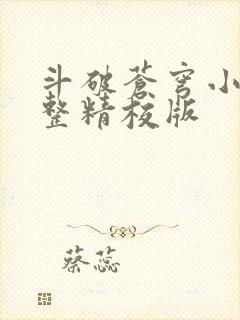 斗破蒼穹小
整精校版
蔡蕊